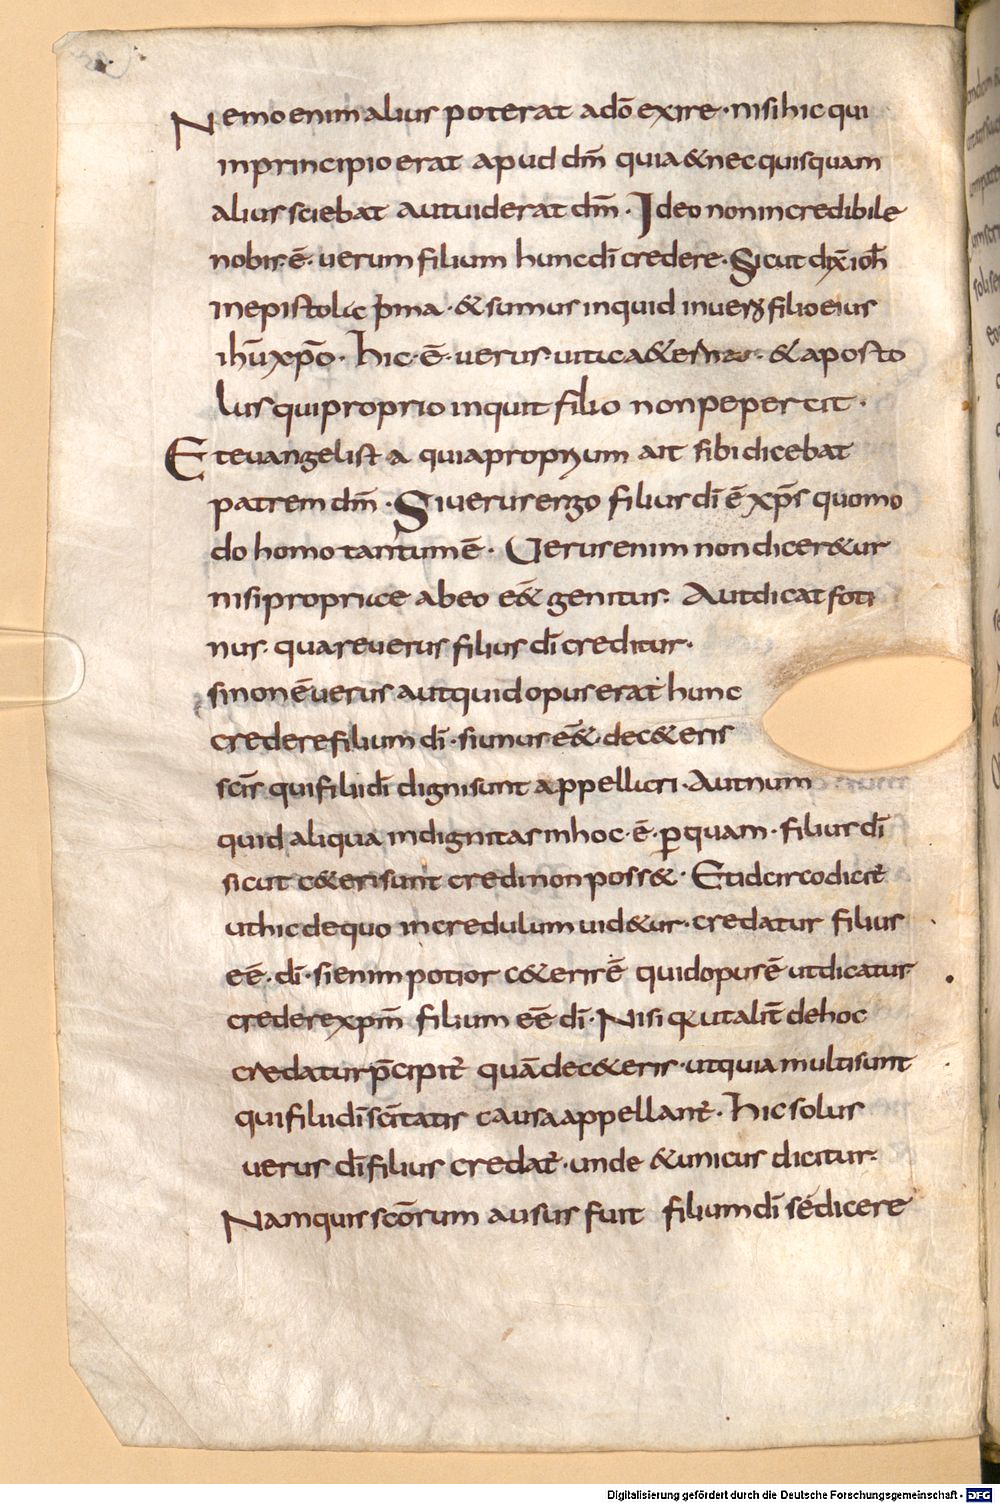 Nemo enim alius poterat ad dō exire · nisi hic qui
in principio erat apud dm̄ quia & nec quisquam
alius sciebat aut uiderat dm̄ · Ideo non incredibile
nobis ē · uerum filium hunc dī credere · Sicut dix̄ ioh̄
in epistola pma · & sumus inquid in uero filio eius
ihū xpō · hic · ē · uerus uita & · & aposto
lus qui proprio inquit filio non pepercit ·
Et euangelista quia proprium ait sibi dicebat
patrem dm̄ · Si uerus ergo filius dī ē xps̄ quomo
do homo tantum ē · Uerus enim non dicer&ur
nisi propriae ab eo eē& genitus · Aut dicat foti
nus · quare uerus filius dī creditur ·
si non ē uerus aut quid opus erat hunc
credere filium dī · si unus eē& de c&eris
scīs qui filii dī digni sunt appellari · Aut num
quid aliqua indignitas in hoc · ē · p quam · filius dī
sicut c&eri sunt credi non poss& · Et idcirco dicit
ut hic de quo incredulum uid&ur · credatur filius
eē · dī · si enim potior c&eris ē quid opus ē ut dicatur
credere xpm̄ filium eē dī · Nisi qa ut aliť de hoc
credatur p̄cipiť quā de c&eris · ut quia multi sunt
qui filii dī scītatis causa appellanť · hic solus
uerus dī filius credať · unde & unicus dicitur ·
Nam quis scōrum ausus fuit filium dī se dicere
Digitalisierung gefördert durch die Deutsche Forschungsgemeinschaft - DFG